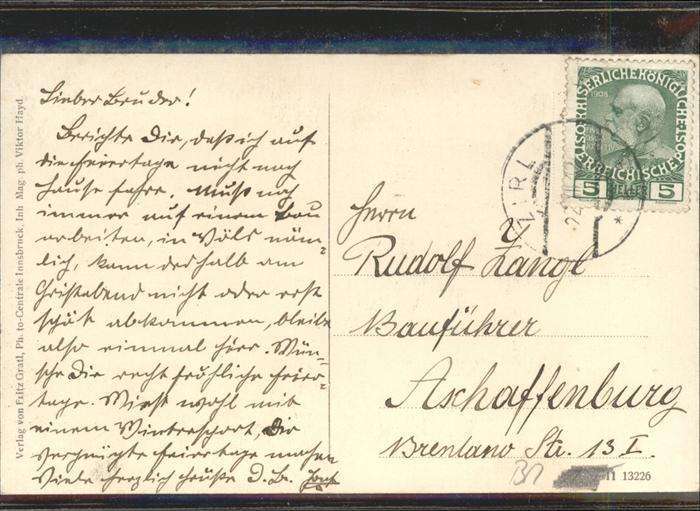 Lieber Bruder!
Berichte Dir, daß ich auf
die Feiertage nicht nach
Hause fahre. Muß noch
immer auf einem Bau
arbeiten, in Völs näm-
lich, kann deshalb am
Christabend nicht oder erst
spät abkommen, bleibe
also einmal hier. Wün-
sche Dir recht fröhliche Feier-
tage. Wirst wohl mit
einem Wintersport, Dir
vergnügte Feiertage machen
Viele herzlich Grüße D. B.
Verlag von Fritz Gratl, Photo-Centrale Innsbruck. Inh Mag ph Viktor Hayd
KAISERLICHE KÖNIGLICHE
ÖSTERREICHISCHE POST
1908
5 HELLER 5
ZIRL
Herrn
Rudolf Zangl
Bauführer
Aschaffenburg
Brentano Str. 13 I.
11 13226